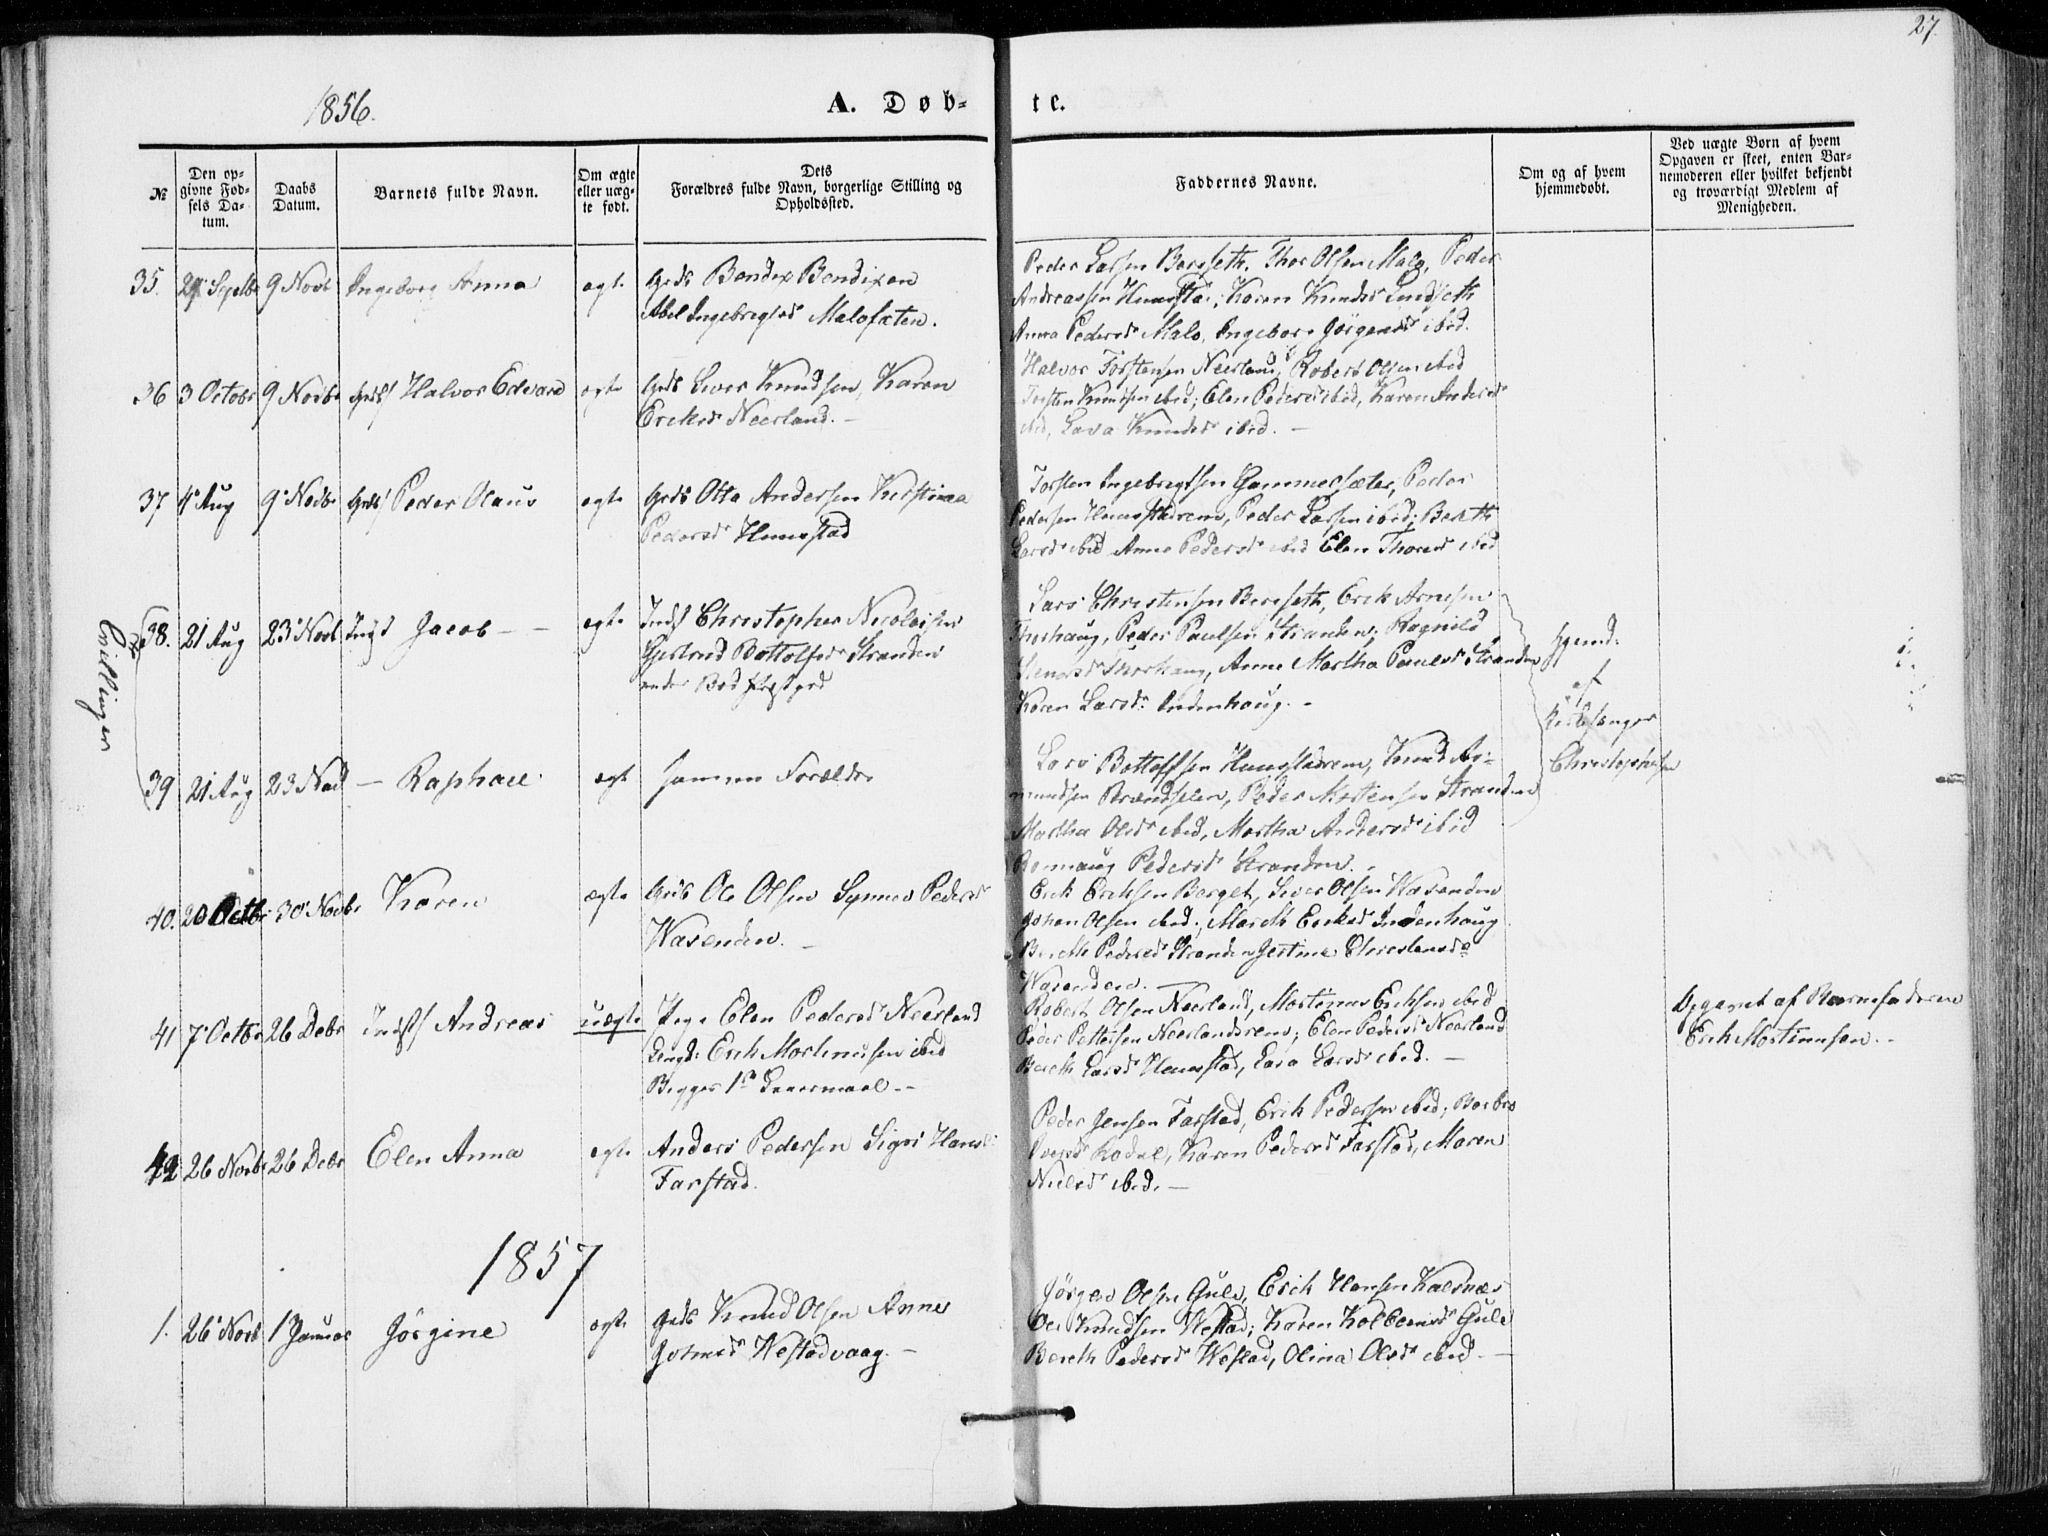 27.
1856.
A. Døb-
te.
№
Den op-
givne Fød-
sels Da-
tum.
Daabs
Datum.
Barnets fulde Navn.
Om ægte
eller uæg-
te født.
Dets
Forældres fulde Navn, borgerlige Stilling og
Opholdssted.
Faddernes Navne.
Om og af hvem
hjemmedøbt.
Ved uægte Børn af hvem
Opgaven er skeet, enten Bar-
nemoderen eller hvilket bekjendt
og troværdigt Medlem af
Menigheden.
35. Septbr 9 Novb Ingeborg Anna ægte Grdb Bendix Bendixen
Abel Ingebregtsd Malosæten.
Peder Larsen Bergseth, Thor Olsen Malo, Peder
Andreassen Hunestad, Karen Knudsd
Anna Pedersd Malo, Ingebor Jörgensd ibid.
36 3 Octobr 9 Novbr Halvor Edvard ægte Grdb Siver Knudsen, Karen
Eriksd Neerland. -
Halvor Torstensen Neerland, Robert Olsen ibid
Torsten Knudsen ibid; Elen Pedersd ibid, Karen Andersd
ibid, Lava Knudsd ibid. -
37 4 Aug 9 Novbr Peder Olaus ægte Grdb Otto Andersen Kirstine
Pedersd Hunestad
Torsten Ingebregtsen Gammelsæter, Peder
Pedersen Hunestadrem, Peder Larsen ibid; Bereth
Larsd ibid Anne Pedersd ibid Elen Thorsd ibid
Tvillinger
38. 21 Aug 23 Novb Jacob - - ægte Inds Christopher Nicolaisen
Gjertrud Bottolfsd Stranden
under Bod Præstgrd
Lars Christensen Bergseth, Erik Arnesen
Thorhaug, Peder Paulsen Stranden; Ragnild
Thorhaug, Anne Martha Paulsd Stranden
Karen Larsd Indenhaug. -
Hjemd.
af
Kirkesanger
Christophersen
39 21 Aug 23 Novb - Raphael ægt samme Forældre
Lars Bottolfsen Hunestadrem, Knud As-
mundsen Brændselen, Peder Mortensen Stranden
Martha Olsd ibid, Martha Andersd ibid
Rønnaug Pedersd Stranden.
40. 20 Octbr 30 Novbr Karen ægte Grdb Ole Olsen Synnev Pedersd
Wasenden. -
Erik Eriksen Berget, Siver Olsen Wasenden
Johan Olsen ibid; Marith Eriksd Indenhaug
Bereth Pedersd Stranden Gertine Christensd
Wasenden. -
41 7 Octbr 26 Debr Andreas uægte Pige Elen Pedersd Neerland
Ungk: Erik Mortinusen ibid
Begges 1ste Leiermaal. -
Robert Olsen Neerland, Mortinus Eriksen ibid
Peder Pettersen Neerlandsrem; Elen Pedersd Neerland
Bereth Larsd Hunestad, Lava Larsd ibid. -
Opgivet af Barnefaderen
Erik Mortinusen. -
42 26 Novbr 26 Debr Elen Anna ægte Anders Pedersen Sigri Hansd
Farstad.
Peder Jensen Farstad, Erik Pedersen ibid; Barbro
Rødal, Karen Pedersd Farstad, Maren
Nielsd ibid. -
1857
1. 26 Novb 1 Januar Jørgine ægte Grdb Knud Olsen Anne
Westadvaag. -
Jörgen Olsen Gule, Erik Hansen Kalsnæs
Ole Knudsen Westad; Karen Kolbensd Gule
Bereth Pedersd Westad, Olina Olsd ibid -